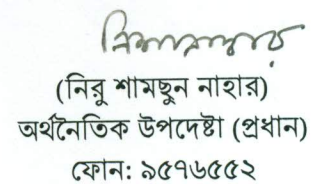 (নিরু শামছুন নাহার)
অর্থনৈতিক উপদেষ্টা (প্রধান)
ফোন: ৯৫৭৬৫৫২